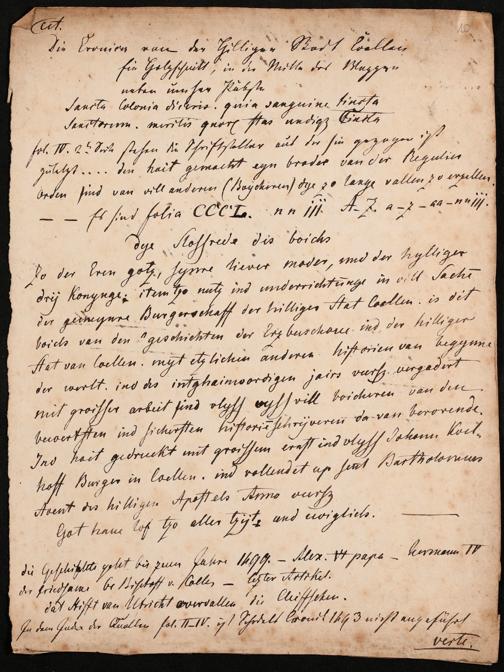 cit.
Die Cronica van der Hilliger Stadt Coellen
ein Holzschnitt, in der Mitte das Wappen
neben unser
Sancta Colonia diceris. quia sanguine tincta
Sanctorum. meritis quorum stas undique Cincta
fol. IV. 2te Seite stehen die Schriftsteller aus der sie gezogen ist
zuletzt .... dis hait gemacht eyn broder van der Regulir
orden sind van vill anderen (Boycheren) dye zo lange vallen zo erzellen
— — Es sind folia CCCL. nn iiij. A-Z. a-z - aa-nniiij.
dye Slossrede dis boichs
Zo der Eren gotz, synre liever moder, ind der hylliger
drij Konynge. item tzo nutz ind underrichtunge in vill Sachen
der gemeynre Burgerschaff der hilliger Stat Coellen. is dit
boich van den geschichten der Ertzbuschove ind der hilliger
Stat van Coellen. myt etzlichen anderen historien van begynne
der werlt. ind des jairs vergadert
mit groisser arbeit ind vlyss vyss vill boicheren van den
bewertsten ind sichersten historischryveren da van berorende.
Ind hait gedruckt mit groissem ernst ind vlyss Johann Koel-
hoff Burger in Coellen. ind vollendet up sent Bartholomeus
Avent des hilligen Apostels Anno vursz
Got have lof tzo aller tzijt und ewiglich.
die Geschichte geht bis zum Jahre 1499. — Alex. VI papa — Hermann IV
der friedsame Bischoff v. Collen — letzter Artikel.
dat Stift van Utricht overvallen die Cleiffschen.
In dem Index der Quellen fol. II-IV. ist Schedels Cronik 1493 nicht angeführt
verte.